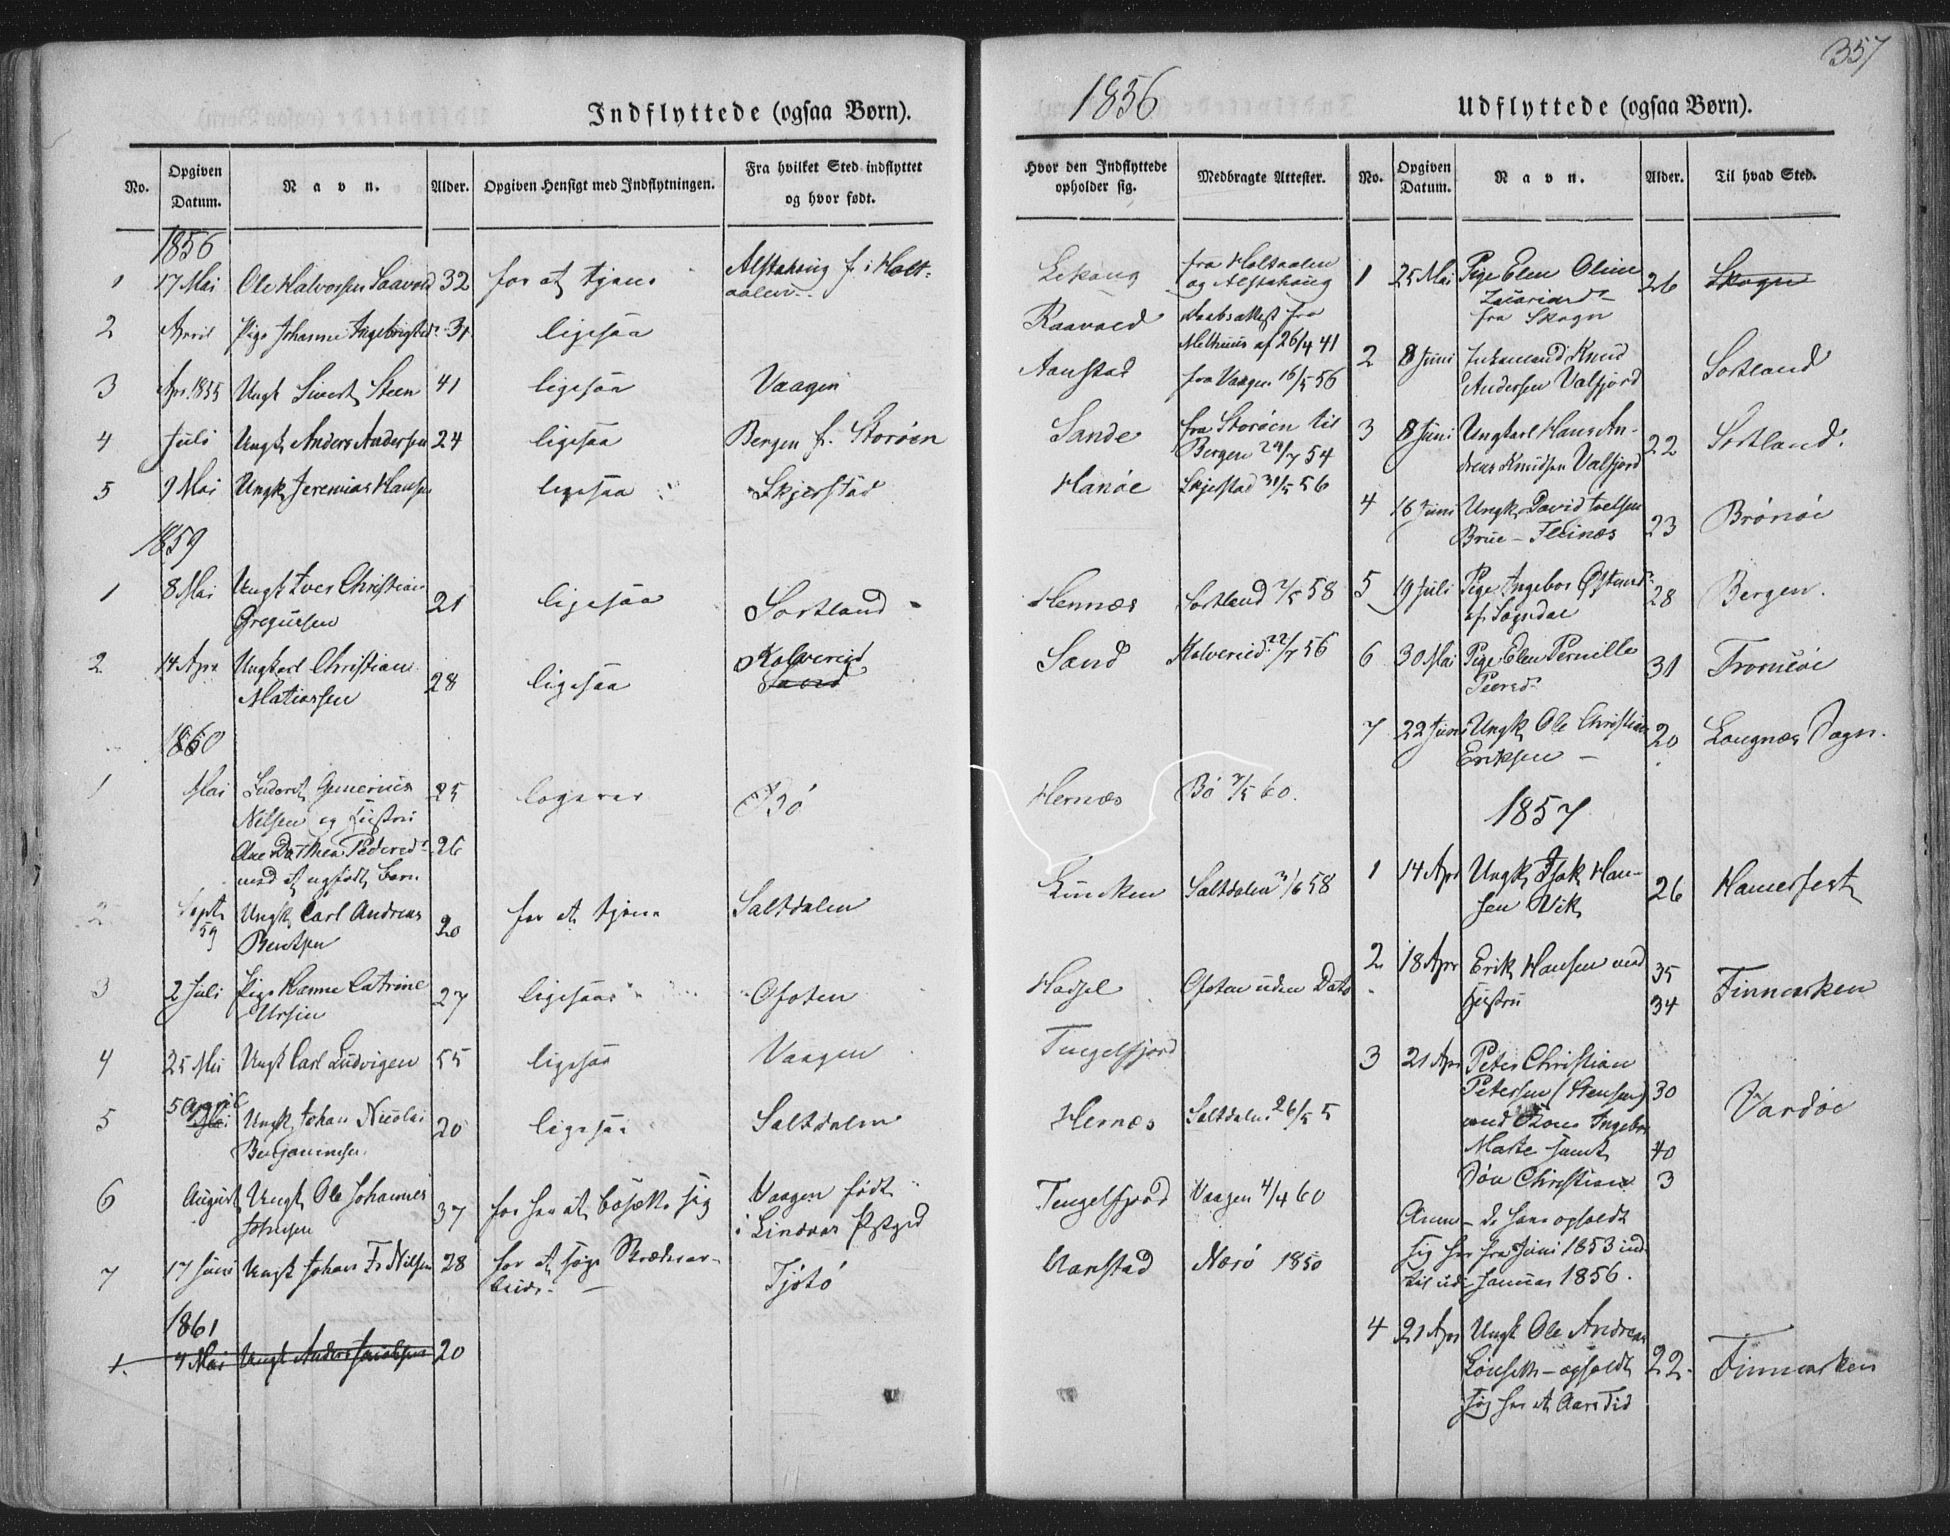 357
Indflyttede (ogsaa Børn).
No.
Opgiven Datum.
Navn.
Alder.
Opgiven Hensigt med Indflytningen.
Fra hvilket Sted indflyttet og hvor født.
1856
1 17 Mai Ole Halvorsen 32 for at tjene Alstahaug f. i Holt-
aalen
2 April Pige Johanne Ingebrigtsd. 31 ligesaa
3 Apr. 1855 Ungk Sivert Steen 41 ligesaa Vaagen
4 Juli Ungk Anders Andersen 24 ligesaa Bergen f. Storöen
5 9 Mai Ungk Jeremias Hansen ligesaa Skjerstad
1859
1 8 Mai Ungk Iver Christian
Gregusen 21 ligesaa Sortland
2 14 Apr Ungkarl Christian Kolvereid
Matiassen 28 ligesaa Sand
1860
1 Mai Gunerius 25 logerer Bö
Nilsen og Hustru
Ane Dorthea Pedersd. 26
med et ugfödt Barn
2 Sept 59 Ungk Carl Andreas
Bentsen 20 for at tjene Saltdalen
3 2 Juli Pige Hanne Catrine
Ursin 27 ligesaa Ofoten
4 25 Mai Ungk Carl Ludvigsen 55 ligesaa Vaagen
5 5 April Ungk Johan Nicolai
Benjaminsen 20 ligesaa Saltdalen
6 August Ungk Ole Johannes
Johnsen 37 for her at bosætte sig Vaagen födt
i Lindaas Pstgd
7 17 Juni Ungk Johan Fr Nilsen 28 for at söge Skrædderar-
beide Tjötö
1861
1. 4 Mai Ungk Anders Jacobsen 20
1856
Udflyttede (ogsaa Børn).
Hvor den Indflyttede opholder sig.
Medbragte Attester.
No.
Opgiven Datum.
Navn.
Alder.
Til hvad Sted.
Lekang fra Holtaalen
og Alstahaug
Raavold Daabsattest fra
Melhuus af 26/4 41
Aanstad fra Vaagen 16/5 56
Sande fra Storöen til
Bergen 29/7 54
Hanöe Skjerstad 31/5 56
Hennes Sortland 7/5 58
Sand Kolvereid 22/7 56
Hernæs Bö 7/5 60.
Saltdalen 3/6 58
Hadsel Ofoten uden Dato
Tengelfjord
Hernæs Saltdalen 26/5 5
Tengelfjord Vaagen 4/4 60
Aanstad Nærö 1850
1 25 Mai Pige Elen Oline
Zakariasd. 26 Skogn
fra Skogn
2 8 Juni Knud
Andersen Valfjord Sortland
3 8 Juni Ungkarl Hans An-
dreas Knudsen Valfjord 22 Sortland.
4 16 Juni Ungk David Joelsen
Brue - Flesnæs 23 Brönöe
5 19 Juli Pige Ingebor Östensd.
af Sogndal 28 Bergen.
6 30 Mai Pige Elen Pernille
Peersd. 31 Tromsöe
7 22 Juni Ungk Ole Christian
Eriksen - 20 Langnæs Sogn.
1857
1 14 Apr Ungk Isak Han-
sen Vik 26 Hamerfest
2 18 Apr Erik Hansen med 35
Hustru 34 Finmarken
3 21 Apr Peter Christian
Petersen (Stensen) 30
med Kone Ingebor Vardöe
Marte samt 40
Sön Christian 3
Anm - De have opholdt
sig her fra Juni 1853 ind
til ud i Januar 1856.
4 21 Apr Ungk Ole Andreas
Lönseth - opholdt 22. Finmarken
sig her et Aars Tid